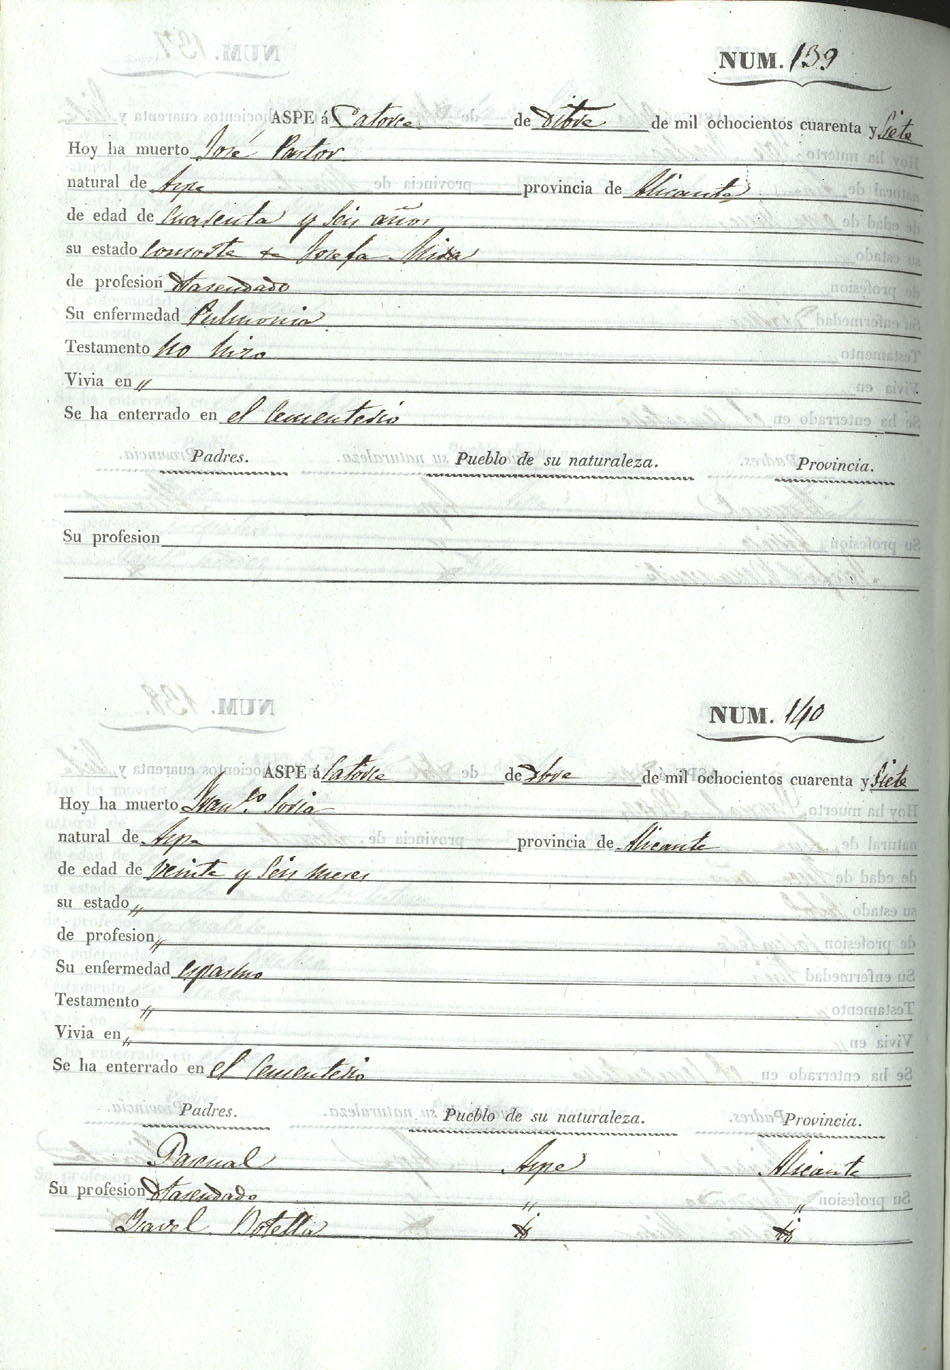 NUM. 139
ASPE á Catorce de Dbre de mil ochocientos cuarenta y Siete
Hoy ha muerto José Pastor
natural de Aspe provincia de Alicante
de edad de Cuarenta y Seis años
su estado consorte de Josefa Mira
de profesion Hasendado
Su enfermedad Pulmonia
Testamento No hizo
Vivia en "
Se ha enterrado en el Cementerio
Padres. Pueblo de su naturaleza. Provincia.
Su profesion
NUM. 140
ASPE á Catorce de Dbre de mil ochocientos cuarenta y Siete
Hoy ha muerto Fran.co Soria
natural de Aspe provincia de Alicante
de edad de Veinte y Seis meses
su estado "
de profesion "
Su enfermedad espasmo
Testamento "
Vivia en "
Se ha enterrado en el Cementerio
Padres. Pueblo de su naturaleza. Provincia.
Pascual Aspe Alicante
Su profesion Hasendado " "
Isavel Botella